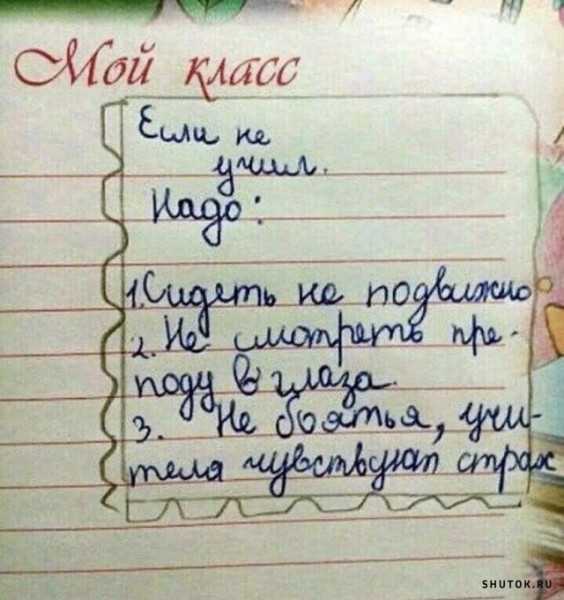 Мой класс
Если не
учил.
Надо:
1. Сидеть не подвижно
2. Не смотреть пре-
поду в глаза.
3. Не боятья, учи-
теля чувствуют страх
SHUTOK.RU